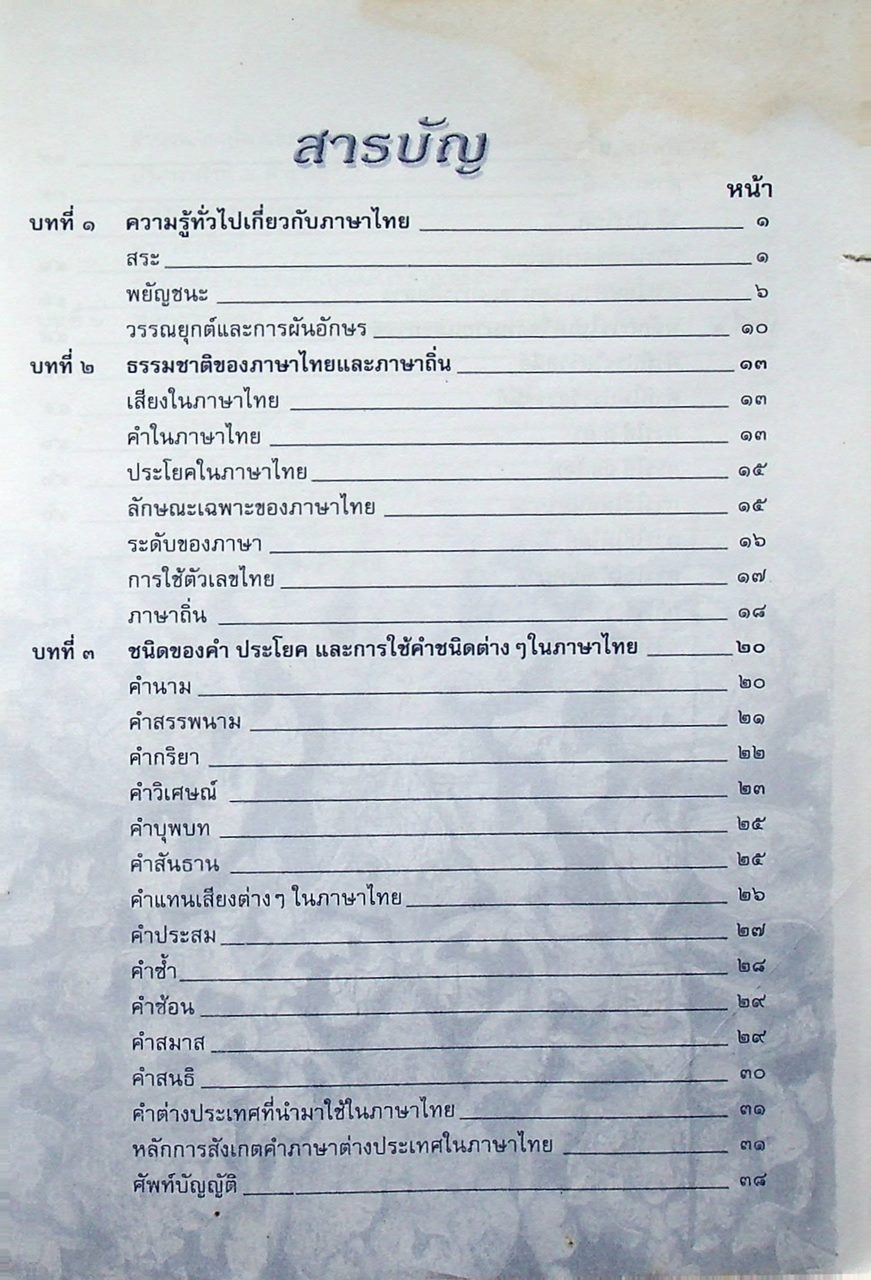 สารบัญ
หน้า
บทที่ ๑ ความรู้ทั่วไปเกี่ยวกับภาษาไทย ๑
สระ ๑
พยัญชนะ ๖
วรรณยุกต์และการผันอักษร ๑๐
บทที่ ๒ ธรรมชาติของภาษาไทยและภาษาถิ่น ๑๓
เสียงในภาษาไทย ๑๓
คำในภาษาไทย ๑๓
ประโยคในภาษาไทย ๑๕
ลักษณะเฉพาะของภาษาไทย ๑๕
ระดับของภาษา ๑๖
การใช้ตัวเลขไทย ๑๗
ภาษาถิ่น ๑๘
บทที่ ๓ ชนิดของคำ ประโยค และการใช้คำชนิดต่าง ๆในภาษาไทย ๒๐
คำนาม ๒๐
คำสรรพนาม ๒๑
คำกริยา ๒๒
คำวิเศษณ์ ๒๓
คำบุพบท ๒๕
คำสันธาน ๒๕
คำแทนเสียงต่าง ๆ ในภาษาไทย ๒๖
คำประสม ๒๗
คำซ้ำ ๒๘
คำซ้อน ๒๙
คำสมาส ๒๙
คำสนธิ ๓๐
คำต่างประเทศที่นำมาใช้ในภาษาไทย ๓๑
หลักการสังเกตคำภาษาต่างประเทศในภาษาไทย ๓๑
ศัพท์บัญญัติ ๓๘